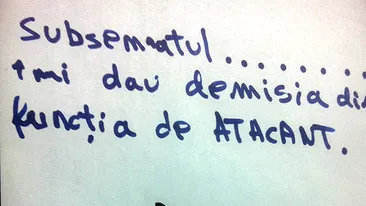 Subsemnatul........
îmi dau demisia din
funcția de ATACANT.